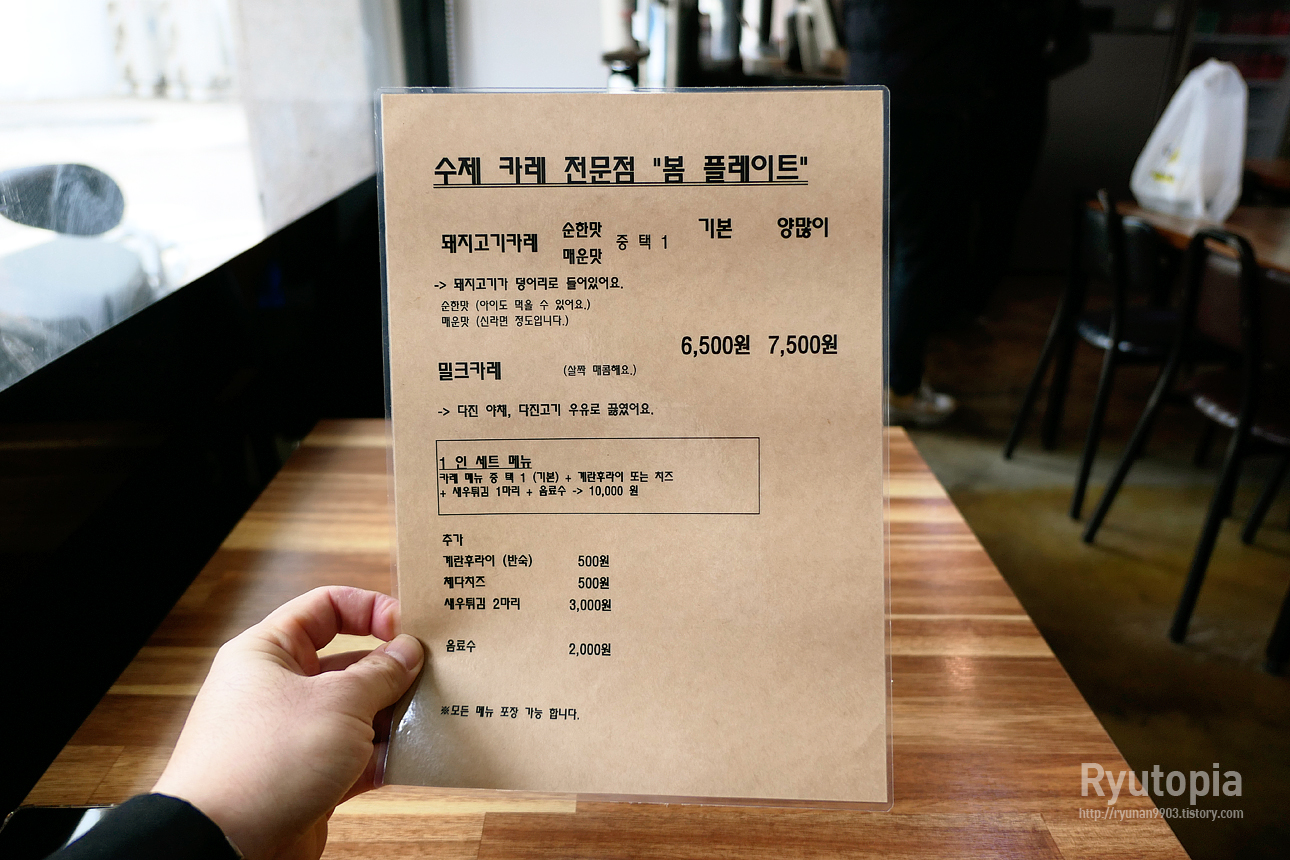 수제 카레 전문점 "봄 플레이트"
기본 양많이
돼지고기카레 순한맛 매운맛 중 택 1
-> 돼지고기가 덩어리로 들어있어요.
순한맛 (아이도 먹을 수 있어요.)
매운맛 (신라면 정도입니다.)
6,500원 7,500원
밀크카레 (살짝 매콤해요.)
-> 다진 야채, 다진고기 우유로 끓였어요.
1 인 세트 메뉴
카레 메뉴 중 택 1 (기본) + 계란후라이 또는 치즈
+ 새우튀김 1마리 + 음료수 -> 10,000 원
추가
계란후라이 (반숙) 500원
체다치즈 500원
새우튀김 2마리 3,000원
음료수 2,000원
※모든 메뉴 포장 가능 합니다.
Ryutopia
http://ryunan9903.tistory.com